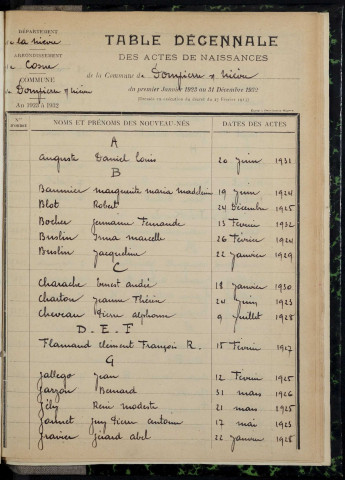 DÉPARTEMENT
de la Nièvre
ARRONDISSEMENT
de Cosne
COMMUNE
de Dompierre s/ nièvre
An 1923 à 1932
TABLE DÉCENNALE
DES ACTES DE NAISSANCES
de la Commune de Dompierre s/ nièvre
du premier Janvier 1923 au 31 Décembre 1932
Nos
NOMS ET PRÉNOMS DES NOUVEAU-NÉS
DATES DES ACTES
A
Auguste Daniel Louis 20 Juin 1931
B
marguerite maria madeleine 19 Juin 1924
Blot Robert 24 décembre 1925
Bocher Germaine Fernande 13 Février 1932
Brulin Irma marcelle 26 Février 1924
Brulin Jacqueline 22 Janvier 1929
C
Charache Ernest andré 18 Janvier 1930
Charton Jeanne 24 Juin 1923
Chevreau Pierre alphonse 9 Juillet 1928
D. E. F
Flamand Clément François R. 15 Février 1927
G
Gallego Jean 12 Février 1925
Garzon Bernard 31 mars 1926
Gély René modeste 21 mars 1925
Guy Pierre antonin 17 mai 1923
Gravier Gérard abel 22 Janvier 1928